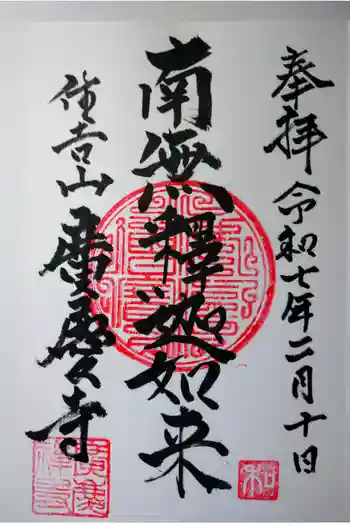 奉拝 令和七年二月十日
南無釋迦如来
住吉山 廣慶寺
和